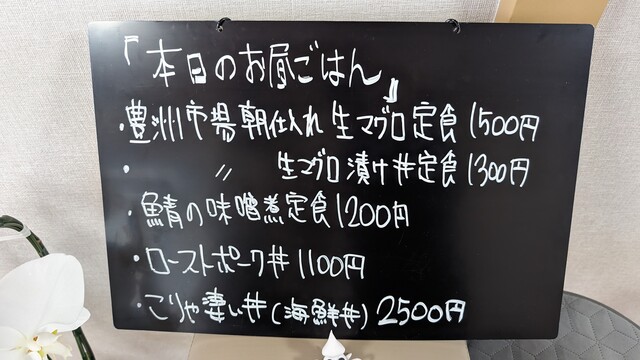 「本日のお昼ごはん」
・豊洲市場朝仕入れ 生マグロ定食 1500円
・ 〃 生マグロ漬け丼定食 1300円
・鯖の味噌煮定食 1200円
・ローストポーク丼 1100円
・こりゃ凄い丼(海鮮丼) 2500円